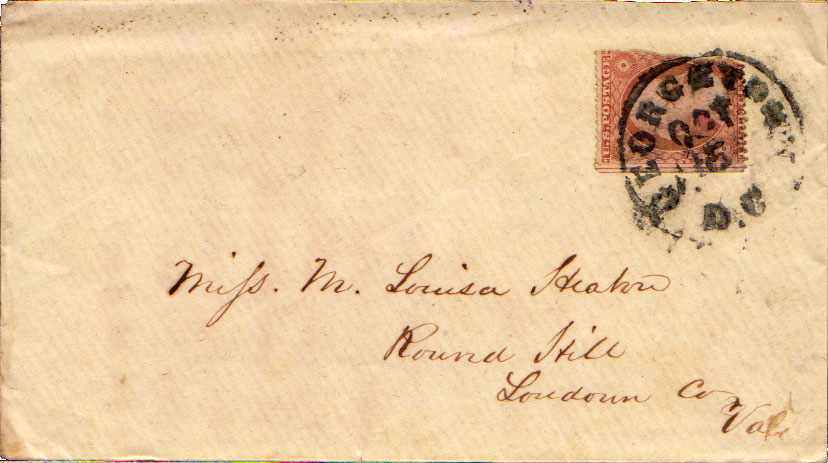 U.S. POSTAGE
GEORGETOWN
OCT
15
D.C
Miss. M. Louisa Heaton
Round Hill
Loudoun Co
Va